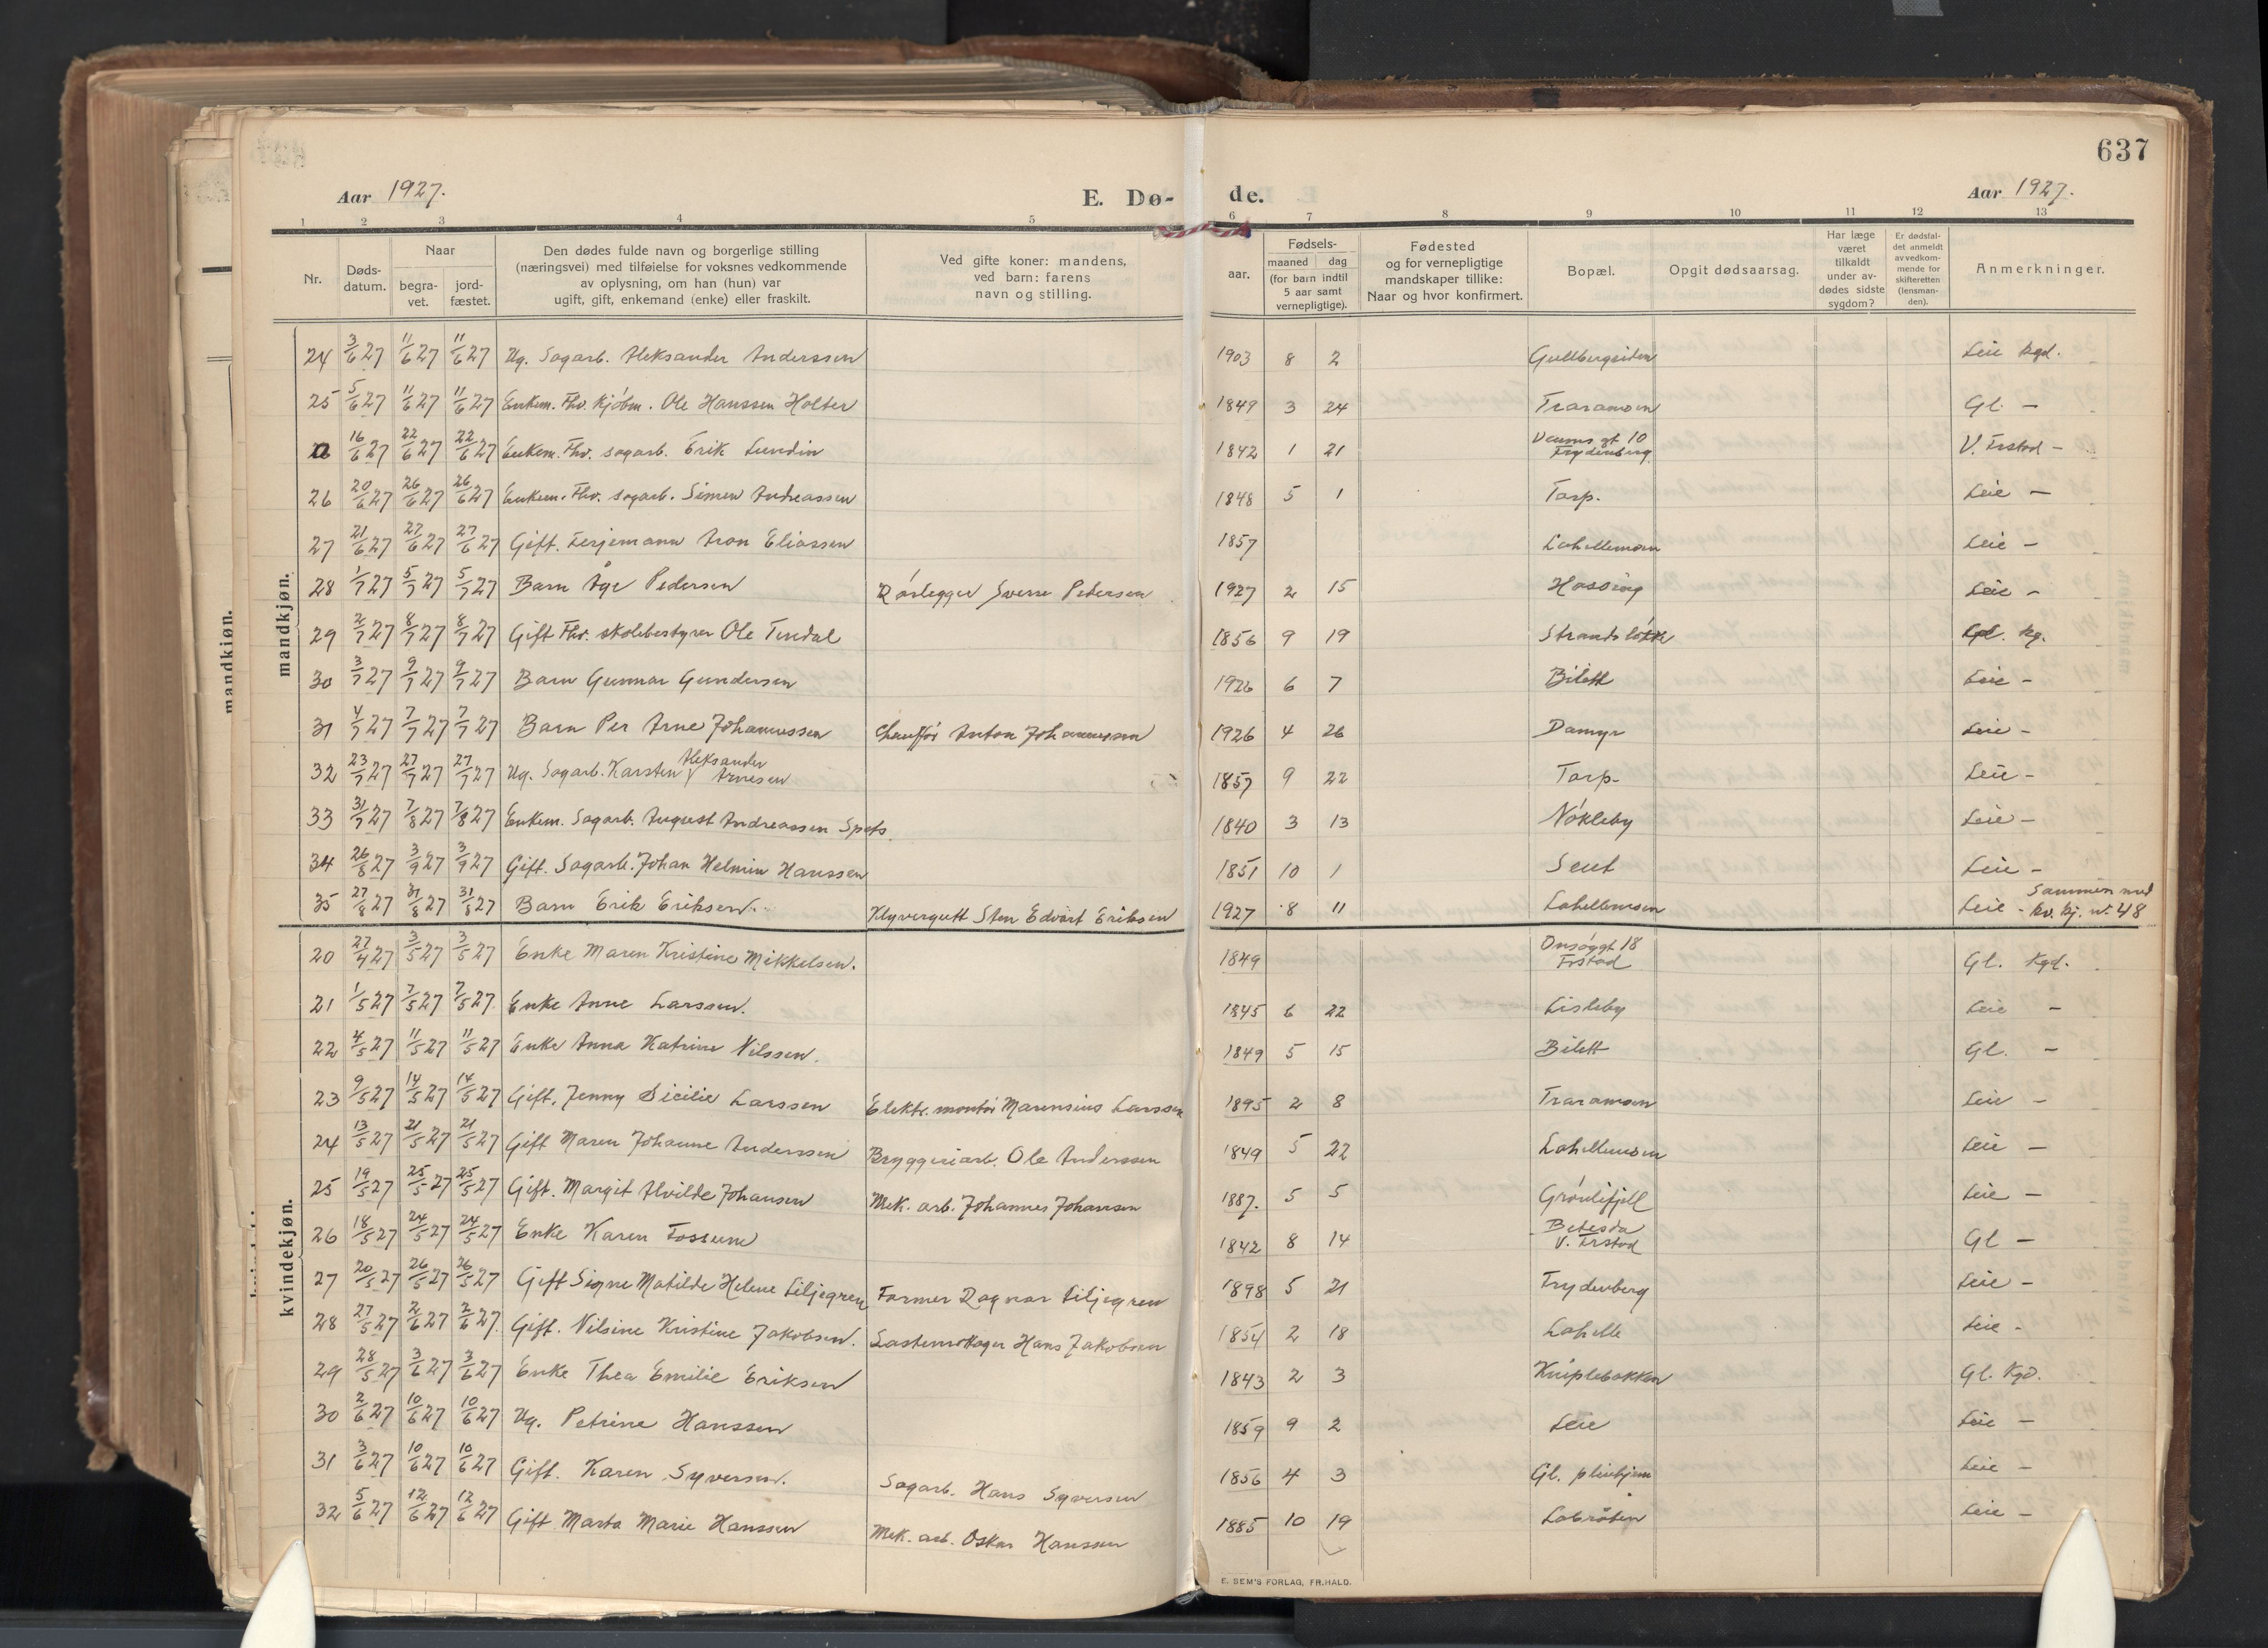 637
Aar 1927.
E. Dø-
de.
Aar 1927.
1 2 3 4 5 6 7 8 9 10 11 12 13
Nr.
Døds-
datum.
Naar
begra-
vet.
jord-
fæstet.
Den dødes fulde navn og borgerlige stilling
(næringsvei) med tilføielse for voksnes vedkommende
av oplysning, om han (hun) var
ugift, gift, enkemand (enke) eller fraskilt.
Ved gifte koner: mandens,
ved barn: farens
navn og stilling.
Fødsels-
aar.
maaned dag
(for barn indtil
5 aar samt
vernepligtige).
Fødested
og for vernepligtige
mandskaper tillike:
Naar og hvor konfirmert.
Bopæl.
Opgit dødsaarsag.
Har læge
været
tilkaldt
under av-
dødes sidste
sygdom?
Er dødsfal-
det anmeldt
av vedkom-
mende for
skifteretten
(lensman-
den).
Anmerkninger.
mandkjøn.
mandkjøn.
24 3/6 27 11/6 27 11/6 27 Ug. Sagarb. Aleksander Anderssen 1903 8 2 Gullbergsiden Leie kgd.
25 5/6 27 11/6 27 11/6 27 Enkem. Fhv. kjøbm. Ole Hanssen Holter 1849 3 24 Traramoen Gl. -
a 16/6 27 22/6 27 22/6 27 Enkem. Fhv. sagarb. Erik Lundin 1842 1 21 Veums gt 10 Frydenberg V. Frstad -
26 20/6 27 26/6 27 26/6 27 Enkem. Fhv. sagarb. Simen Andreassen 1848 5 1 Torp. Leie -
27 21/6 27 27/6 27 27/6 27 Gift. Ferjemann Aron Eliassen 1857 Lahellemoen Leie -
28 1/7 27 5/7 27 5/7 27 Barn Åge Pedersen Rørlegger Sverre Pedersen 1927 2 15 Hassing Leie -
29 2/7 27 8/7 27 8/7 27 Gift Fhv. skolebestyrer Ole Tindal 1856 9 19 Strandsløkke Gl. kg.
30 3/7 27 9/7 27 9/7 27 Barn Gunnar Gundersen 1926 6 7 Bilett Leie -
31 4/7 27 7/7 27 7/7 27 Barn Per Arne Johannessen Chauffør Anton Johannessen 1926 4 26 Damyr Leie -
32 23/7 27 27/7 27 27/7 27 Ug. Sagarb. Karsten Aleksander Arnesen 1857 9 22 Torp. Leie -
33 31/7 27 7/8 27 7/8 27 Enkem. Sagarb. August Andreassen Spets 1840 3 13 Nøkleby Leie -
34 26/8 27 3/9 27 3/9 27 Gift. Sagarb. Johan Helmin Hanssen 1851 10 1 Seut Leie -
35 27/8 27 31/8 27 31/8 27 Barn Erik Eriksen. Klyvergutt Sten Edvart Eriksen 1927 8 11 Lahellemoen Leie - Sammen med kv. kj. nr. 48
kvindekjøn.
20 27/4 27 3/5 27 3/5 27 Enke Maren Kristine Mikkelsen. 1849 Onsøygt 18 Frstad Gl. kgd.
21 1/5 27 7/5 27 7/5 27 Enke Anne Larssen. 1845 6 22 Lisleby Leie -
22 4/5 27 11/5 27 11/5 27 Enke Anna Katrine Nilssen. 1849 5 15 Bilett Gl. -
23 9/5 27 14/5 27 14/5 27 Gift. Jenny Sicilie Larssen Elektr. montør Marensius Larssen 1895 2 8 Traramoen Leie -
24 13/5 27 21/5 27 21/5 27 Gift Maren Johanne Anderssen Bryggeriarb. Ole Anderssen 1849 5 22 Lahellemoen Leie -
25 19/5 27 25/5 27 25/5 27 Gift. Margit Alvilde Johansen Mek. arb. Johannes Johansen 1887. 5 5 Grønlifjell Leie -
26 18/5 27 24/5 27 24/5 27 Enke Karen Fossum 1842 8 14 Betesda V. Frstad Gl -
27 20/5 27 26/5 27 26/5 27 Gift Signe Matilde Helene Liljegren Former Ragnar Liljegren 1898 5 21 Frydenberg Leie -
28 27/5 27 2/6 27 2/6 27 Gift. Nilsine Kristine Jakobsen. Lastemottager Hans Jakobsen 1854 2 18 Lahelle Leie -
29 28/5 27 3/6 27 3/6 27 Enke Thea Emilie Eriksen 1843 2 3 Kniplebakken Gl. Kgd.
30 2/6 27 10/6 27 10/6 27 Ug. Petrine Hanssen 1859 9 2 Leie Leie -
31 3/6 27 10/6 27 10/6 27 Gift. Karen Syversen. Sagarb. Hans Syversen 1856 4 3 Gl. pleiehjem Leie -
32 5/6 27 12/6 27 12/6 27 Gift Marta Marie Hanssen Mek. arb. Oskar Hanssen 1885 10 19 Labråten Leie -
E. SEM'S FORLAG, FR.HALD.